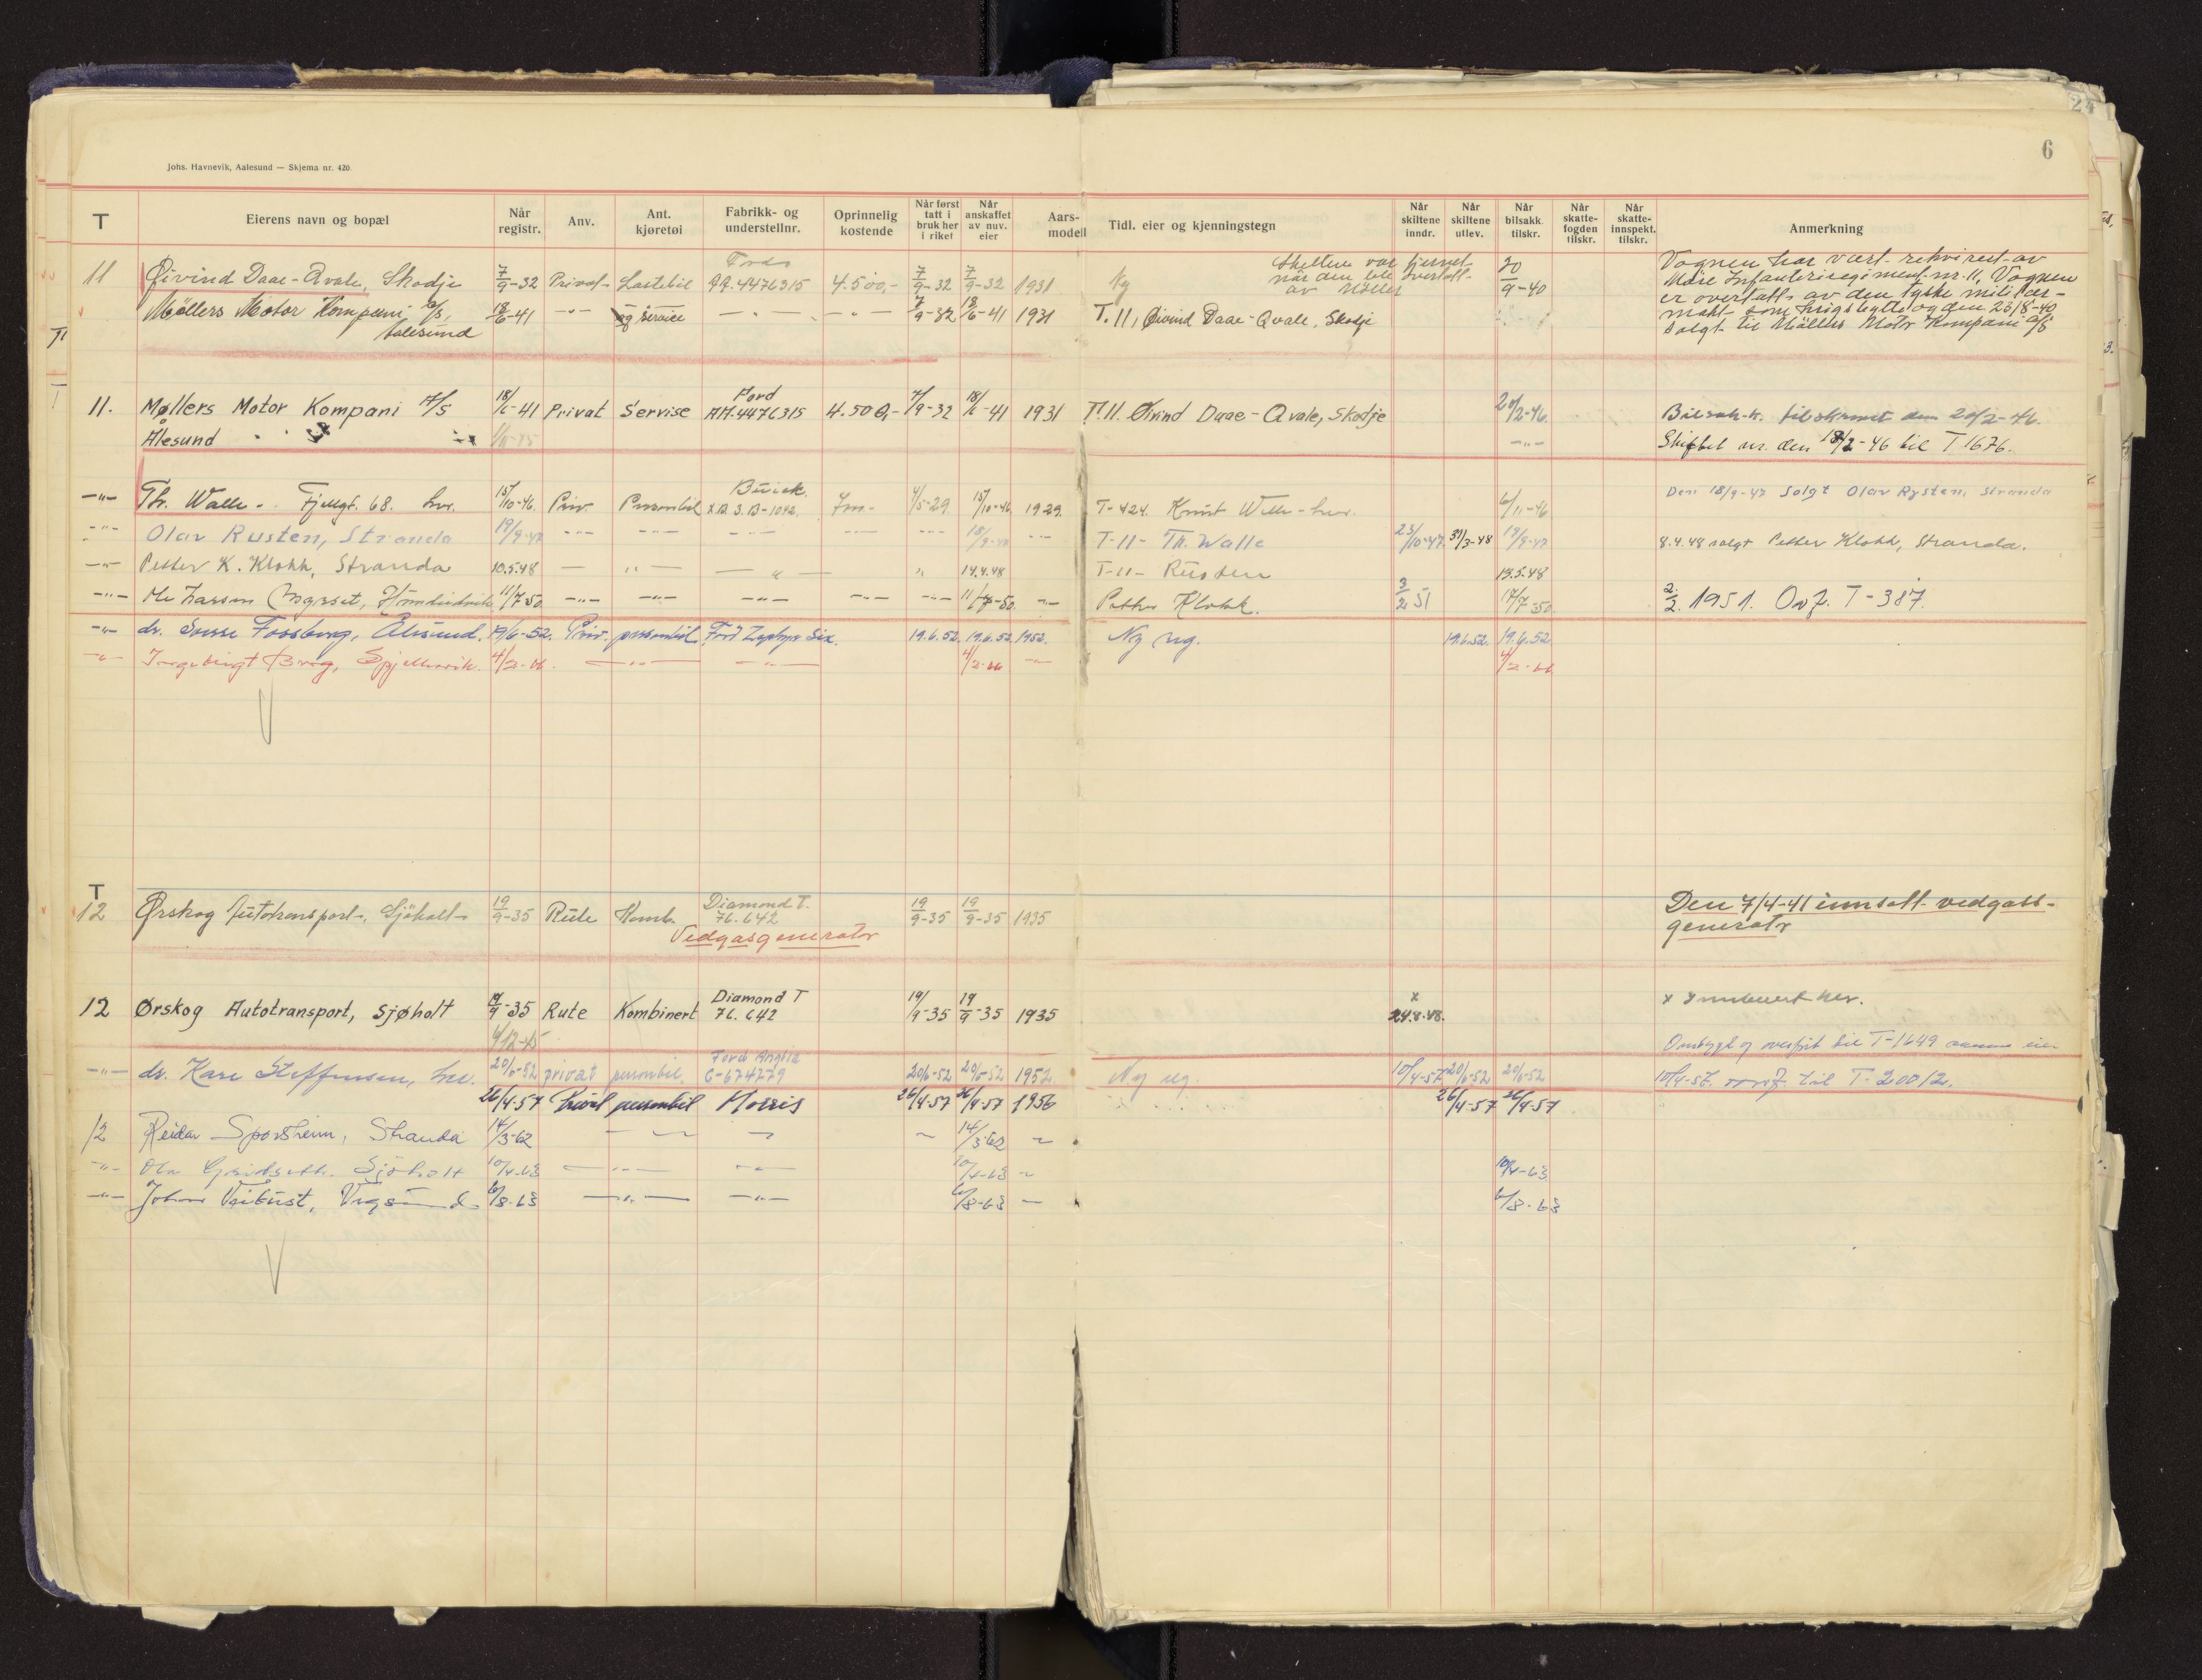 24
6
Johs. Havnevik, Aalesund — Skjema nr. 420.
T Eierens navn og bopæl Når registr. Anv. Ant. kjøretøi Fabrikk- og understellnr. Oprinnelig kostende Når først tatt i bruk her i riket Når anskaffet av nuv. eier Aars-modell Tidl. eier og kjenningstegn Når skiltene inndr. Når skiltene utlev. Når bilsakk. tilskr. Når skatte-fogden tilskr. Når skatte-innspekt. tilskr. Anmerkning
11 Øivind Daae-Qvale, Skodje 7/9-32 Privat Lastebil Ford AA.4476315 4.500,- 7/9-32 7/9-32 1931 Ny Skiltene var fjernet når den ble overtatt av Möller 20/9-40 Vognen har vært rekvirert av
Møre Infanteriregiment nr. 11, Vognen
er overtatt av den tyske militær-
makt som krigsbytte og den 23/8-40
solgt til Möllers Motor Kompani A/S
Möllers Motor Kompani A/S, Aalesund 18/6-41 -"- og service -"- -"- 7/9-32 18/6-41 1931 T.11, Øivind Daae-Qvale, Skodje
11. Møllers Motor Kompani A/S 18/6-41 Privat Servise Ford AA.4476315 4.500,- 7/9-32 18/6-41 1931 T.11. Øivind Daae-Qvale, Skodje 20/2-46. Bilsak-k. tilskrevet den 20/2-46.
Ålesund -"- Skiftet nr. den 18/2-46 til T 1676.
-"- Th. Walle - Fjellgt. 68. her. 15/10-46. Priv Personbil Buick. 4/5-29 15/10-46 1929. T-424. Knut Walle - her. 6/11-46 Den 18/9-47 Solgt Olav Rysten, Stranda
-"- Olav Rusten, Stranda 19/9-47 -"- -"- -"- -"- -"- 18/9-47 -"- T-11- Th. Walle 23/10-47. 31/3-48 19/9-47 8.4.48 solgt Petter Klokk, Stranda.
-"- Petter K. Klokk, Stranda 10.5.48 — "— —"— " 14.4.48 T-11- Rusten 13.5.48
-"- Ole Larsen 11/7 50. -"- -"- -"- -"- -"- 11/7-50. -"- Petter Klokk. 3/2 51 17/7 50 2/2. 1951. Ovf. T-387.
-"- dr. Sverre Fossberg, Ålesund. 19/6-52. Priv. personbil Ford Zephyr Six. 19.6.52. 19.6.52. 1952. Ny reg. 19.6.52. 19.6.52
-"- Ingebrigt Brag, Spjelkavik. 4/2-66. —"— —"— 4/2-66 -"- 4/2-66
T
12 Ørskog Autotransport, Sjöholt 19/9-35 Rute Komb. Diamond T. 76.642 19/9-35 19/9-35 1935 Den 7/4-41 innsatt vedgass-
generator
Vedgasgenerator
12 Ørskog Autotransport, Sjøholt 19/9-35 Rute Kombinert Diamond T 76.642 19/9-35 19/9-35 1935 x 24.8.48. x Innlevert her.
4/12-45 Ombygd og overført til T-1649 samme eier
-"- dr. Kåre Steffensen, her. 20/6-52 privat personbil. Ford Anglia C-674279 20/6-52 20/6-52 1952. Ny reg. 10/4-57 20/6-52 20/6-52 10/4-57. overf. til T-20012.
26/4-57 Privat personbil Morris 26/4-57 26/4-57 1956 26/4-57 26/4-57
12 Reidar Sporsheim, Stranda 14/3-62 — 14/3-62
-"- Ola Sjöholt 10/4-63 —"— -"- 10/4-63 10/4-63
-"- Johan Veibust, Vegsund 6/8-63 —"— —"— 6/8-63 — 6/8-63